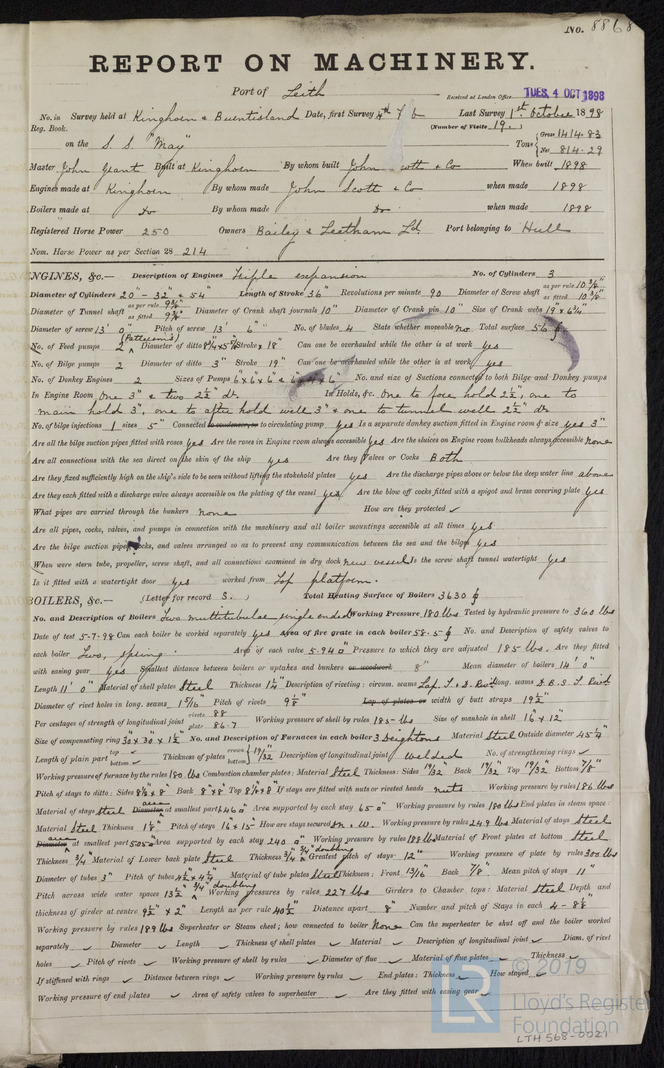 No. 8868
REPORT ON MACHINERY.
Port of Leith
Received at London Office TUES. 4 OCT 1898
No. in Survey held at Kinghorn & Burntisland Date, first Survey 4th Feb Last Survey 1st October 1898
Reg. Book. (Number of Visits 19.)
on the S. S. "May" Tons Gross 1414.83 Net 814.29
Master John Grant Built at Kinghorn By whom built John Scott & Co When built 1898
Engines made at Kinghorn By whom made John Scott & Co when made 1898
Boilers made at Do By whom made Do when made 1898
Registered Horse Power 250 Owners Bailey & Leetham Ld. Port belonging to Hull
Nom. Horse Power as per Section 28 214
ENGINES, &c.— Description of Engines Triple expansion No. of Cylinders 3
Diameter of Cylinders 20" - 32" & 54" Length of Stroke 36" Revolutions per minute 90 Diameter of Screw shaft as per rule as fitted
Diameter of Tunnel shaft as per rule 9 3/8" as fitted 9 3/4" Diameter of Crank shaft journals 10" Diameter of Crank pin 10" Size of Crank webs 19" x 6 3/4"
Diameter of screw 13' 0" Pitch of screw 13' 6" No. of blades 4 State whether moveable no Total surface 56
No. of Feed pumps 2 (Patterson's) Diameter of ditto Stroke 18" Can one be overhauled while the other is at work yes
No. of Bilge pumps 2 Diameter of ditto 3" Stroke 19" Can one be overhauled while the other is at work yes
No. of Donkey Engines 2 Sizes of Pumps 6" x 6" x 6" & No. and size of Suctions connected to both Bilge and Donkey pumps
In Engine Room One 3" & two 2 1/2" dr. In Holds, &c. One to fore hold 2 1/2", one to
main hold 3", one to after hold well 3" & one to tunnel well 2 1/2" dr
No. of bilge injections 1 sizes 5" Connected to condenser, or to circulating pump yes Is a separate donkey suction fitted in Engine room & size yes 3"
Are all the bilge suction pipes fitted with roses yes Are the roses in Engine room always accessible yes Are the sluices on Engine room bulkheads always accessible none
Are all connections with the sea direct on the skin of the ship yes Are they Valves or Cocks Both
Are they fixed sufficiently high on the ship's side to be seen without lifting the stokehold plates yes Are the discharge pipes above or below the deep water line above
Are they each fitted with a discharge valve always accessible on the plating of the vessel yes Are the blow off cocks fitted with a spigot and brass covering plate yes
What pipes are carried through the bunkers none How are they protected ✓
Are all pipes, cocks, valves, and pumps in connection with the machinery and all boiler mountings accessible at all times yes
Are the bilge suction pipes, cocks, and valves arranged so as to prevent any communication between the sea and the bilge yes
When were stern tube, propeller, screw shaft, and all connections examined in dry dock new vessel Is the screw shaft tunnel watertight yes
Is it fitted with a watertight door yes worked from Top platform.
BOILERS, &c.— (Letter for record S.) Total Heating Surface of Boilers 3630
No. and Description of Boilers Two multitubular single ended Working Pressure 180 lbs Tested by hydraulic pressure to 360 lbs
Date of test 5-7-98 Can each boiler be worked separately yes Area of fire grate in each boiler 58.5 No. and Description of safety valves to
each boiler Two, spring. Area of each valve 5.940" Pressure to which they are adjusted 185 lbs. Are they fitted
with easing gear yes Smallest distance between boilers or uptakes and bunkers or woodwork 8" Mean diameter of boilers 14' 0"
Length 11' 0" Material of shell plates Steel Thickness 1 1/4" Description of riveting: circum. seams Lap. T. & D. Rivtd long. seams D.B.S. T. Rivtd
Diameter of rivet holes in long. seams 1 5/16" Pitch of rivets 9 1/8" Lap of plates or width of butt straps 19 1/2"
Per centages of strength of longitudinal joint rivets 88 plate 86.7 Working pressure of shell by rules 185 lbs Size of manhole in shell 16" x 12"
Size of compensating ring 30" x 30" x 1 1/2" No. and Description of Furnaces in each boiler 3 Deightons Material Steel Outside diameter 45 3/4"
Length of plain part top ✓ bottom ✓ Thickness of plates crown bottom 19/32" Description of longitudinal joint welded No. of strengthening rings ✓
Working pressure of furnace by the rules 180 lbs Combustion chamber plates: Material Steel Thickness: Sides 19/32" Back 19/32" Top 19/32" Bottom 7/8"
Pitch of stays to ditto: Sides 8 1/2" x 8" Back 8" x 8" Top If stays are fitted with nuts or riveted heads nuts Working pressure by rules 186 lbs
Material of stays Steel Diameter area at smallest part 1.460" Area supported by each stay 65" Working pressure by rules 180 lbs End plates in steam space:
Material Steel Thickness 1 1/8" Pitch of stays 16" x 15" How are stays secured Dn. & W. Working pressure by rules 249 lbs Material of stays Steel
Diameter area at smallest part 5.05 Area supported by each stay 240 Working pressure by rules 188 lbs Material of Front plates at bottom Steel
Thickness 3/4" Material of Lower back plate Steel Thickness 3/4" & 3/4" doubling Greatest pitch of stays 12" Working pressure of plate by rules 300 lbs
Diameter of tubes 3" Pitch of tubes 4 1/4" x 4 1/4" Material of tube plates Steel Thickness: Front 13/16" Back 7/8" Mean pitch of stays 11"
Pitch across wide water spaces 13 1/2" & 3/4" doubling Working pressures by rules 227 lbs Girders to Chamber tops: Material Steel Depth and
thickness of girder at centre 9 1/2" x 2" Length as per rule 40 1/2" Distance apart 8" Number and pitch of Stays in each 4 - 8 1/8"
Working pressure by rules 189 lbs Superheater or Steam chest; how connected to boiler None Can the superheater be shut off and the boiler worked
separately ✓ Diameter ✓ Length ✓ Thickness of shell plates ✓ Material ✓ Description of longitudinal joint ✓ Diam. of rivet
holes ✓ Pitch of rivets ✓ Working pressure of shell by rules ✓ Diameter of flue ✓ Material of flue plates ✓ Thickness ✓
If stiffened with rings ✓ Distance between rings ✓ Working pressure by rules ✓ End plates: Thickness ✓ How stayed ✓
Working pressure of end plates ✓ Area of safety valves to superheater ✓ Are they fitted with easing gear ✓
© 2019
LR Lloyd's Register
Foundation
LTH 568-0021